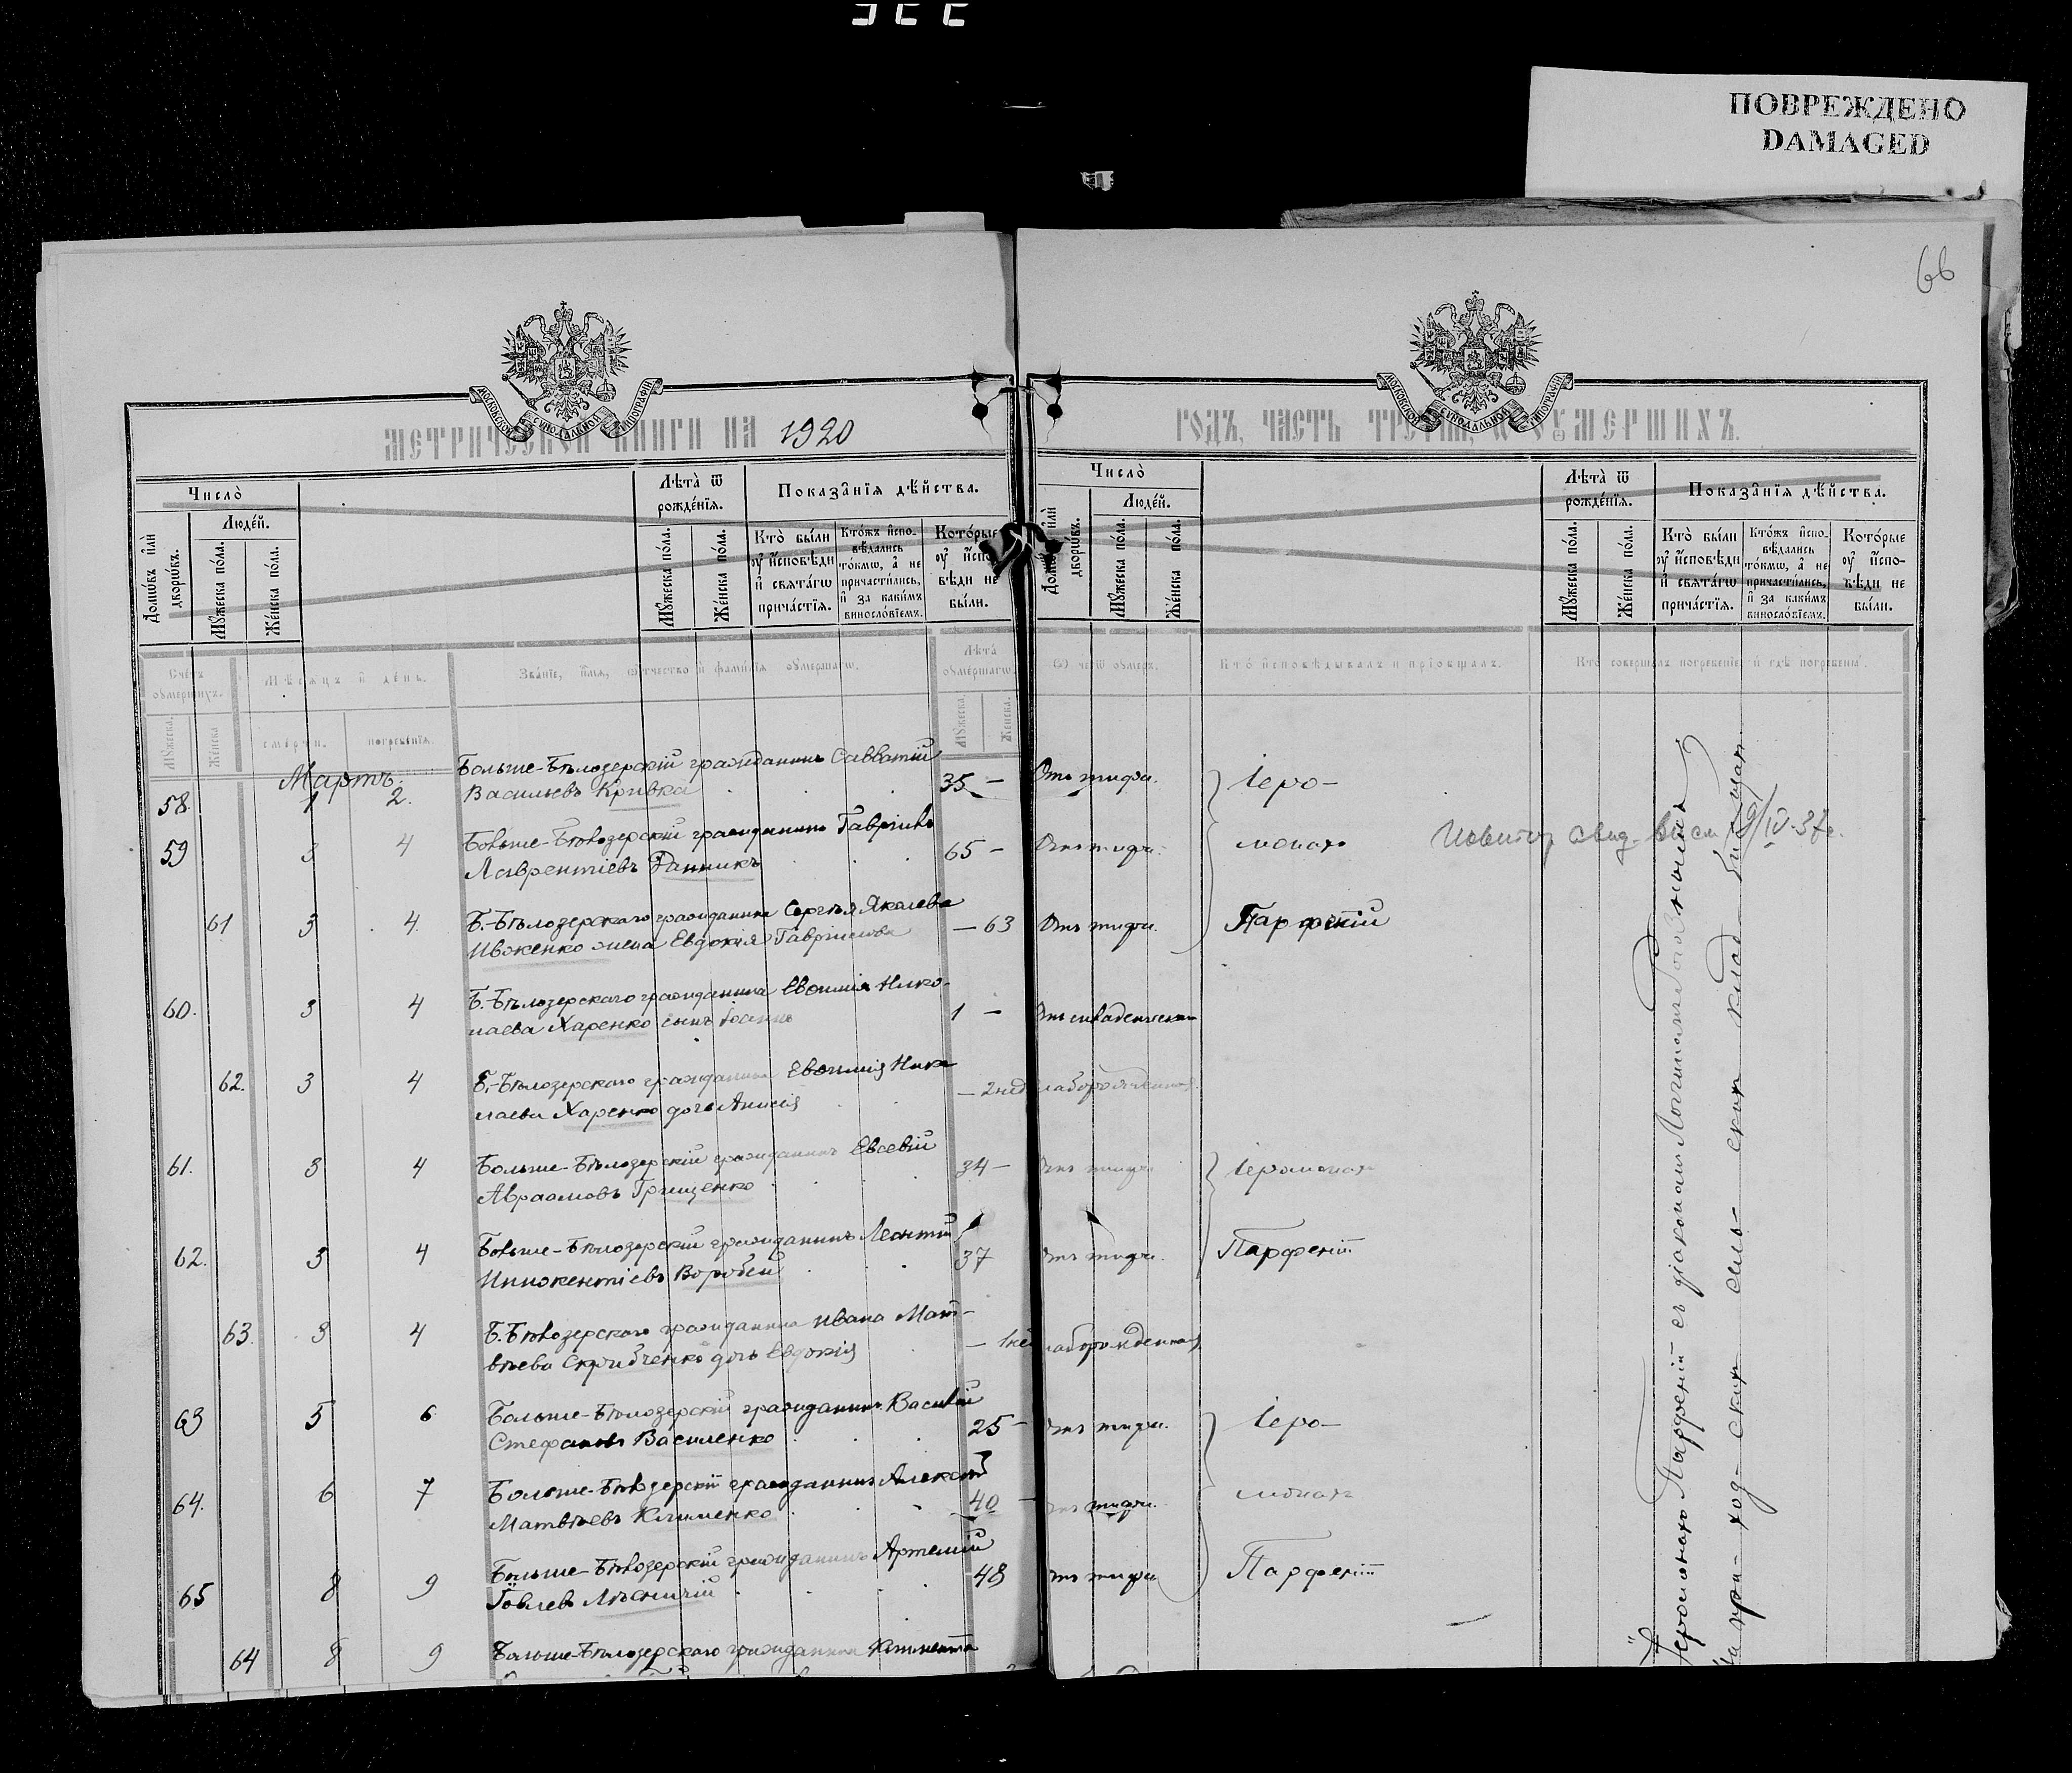 ПОВРЕЖДЕНО
DAMAGED
66
МОСКОВСКОЙ СѴНОДАЛЬНОЙ ТИПОГРАФІИ
МОСКОВСКОЙ СѴНОДАЛЬНОЙ ТИПОГРАФІИ
МЕТРИЧЕСКОЙ КНИГИ НА 1920
ГОДЪ, ЧАСТЬ ТРЕТІЯ, Ѡ ОУМЕРШИХЪ.
Число̀
Людей.
Домѡвъ и҆лѝ дворѡвъ.
Мꙋжеска по́ла.
Же́нска по́ла.
Лѣта̀ ѿ рожде́нїѧ.
Мꙋжеска по́ла.
Же́нска по́ла.
Показа̑нїѧ дѣ́йства.
Кто̀ бы́ли ᲂу҆ и҆сповѣди и҆ свѧта́гѡ прича́стїѧ.
Кто́жъ и҆спо-
вѣдались
то́кмѡ, а҆ не
причасти́лись,
и҆ за каки́мъ
виносло́вїемъ.
Кото́рые
ᲂу҆ и҆спо-
вѣди не
бы́ли.
Число̀
Людей.
Домѡвъ и҆лѝ дворѡвъ.
Мꙋжеска по́ла.
Же́нска по́ла.
Лѣта̀ ѿ рожде́нїѧ.
Мꙋжеска по́ла.
Же́нска по́ла.
Показа̑нїѧ дѣ́йства.
Кто̀ бы́ли
ᲂу҆ и҆сповѣди
и҆ свѧта́гѡ
прича́стїѧ.
Кто́жъ и҆спо-
вѣдались
то́кмѡ, а҆ не
причасти́лись,
и҆ за каки́мъ
виносло́вїемъ.
Кото́рые
ᲂу҆ и҆спо-
вѣди не
бы́ли.
Счетъ ᲂумершихъ.
Мѣсѧцъ и день.
Званїе, имѧ, ѻтчество и фамилїѧ ᲂумершагѡ.
Лѣта ᲂумершагѡ.
Ѿ чегѡ ᲂумеръ.
Кто исповѣдывалъ и прїобщалъ.
Кто совершалъ погребенїе и гдѣ погребены.
Мꙋжеска.
Женска
смерти.
погребенїѧ.
Мꙋжеска.
Женска.
Мартъ.
58. 1 2. Больше-Бѣлозерскій гражданинъ Савватій
Васильевъ Кривка 35 – Отъ тифа. Іеро-
59 3 4 Больше-Бѣлозерскій гражданинъ Гавріилъ
Лаврентіевъ 65 – Отъ тифа. монахъ
61 3 4. Б.-Бѣлозерскаго гражданина Сергѣя Яковлева
Ивженко жена Евдокія Гавріилова – 63 Отъ тифа. Парфеній
60. 3 4 Б.-Бѣлозерскаго гражданина Евѳимія Нико-
лаева Харенко сынъ Іоаннъ 1 –
62. 3 4 Б.-Бѣлозерскаго гражданина Евѳимія Нико
лаева Харенко дочь Анисія – 2нед слаборожденная.
61. 3 4 Больше-Бѣлозерскій гражданинъ Евсевій
Авраамовъ Грищенко 34 – отъ тифа Іеромонахъ
62. 3 4 Больше-Бѣлозерскій гражданинъ Леонтій
Иннокентіевъ Воробей 37 отъ тифа. Парфеній
63. 3 4 Б.Бѣлозерскаго гражданина Ивана Мат-
вѣева Скрибченко дочь Евдокія – 1нед слаборожденная
63 5 6 Больше-Бѣлозерскій гражданинъ Василій
Стефановъ Василенко 25 – отъ тифа. Іеро-
64. 6 7 Больше-Бѣлозерскій гражданинъ Алексій
Матвѣевъ Клименко 40 – отъ тифа. монахъ
65 8 9 Больше-Бѣлозерскій гражданинъ Артемій
Іовлевъ Лѣсничій 48 отъ тифа Парфеній
64 8 9 Больше-Бѣлозерскаго гражданина Климента
19/IV-37г.
Іеромонахъ Парфеній съ діакономъ
На при-ход-скихъ клад-